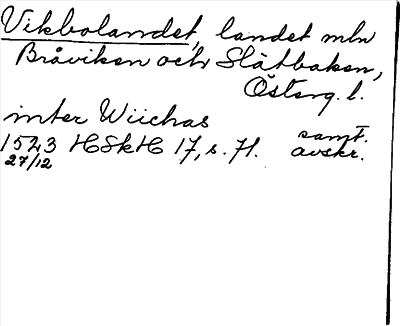 Vikbolandet, landet mln
Bråviken och Slätbaken,
Österg. l.
inter Wiichas
1543 HSkH 17, s. 71. samt. avskr.
27/12